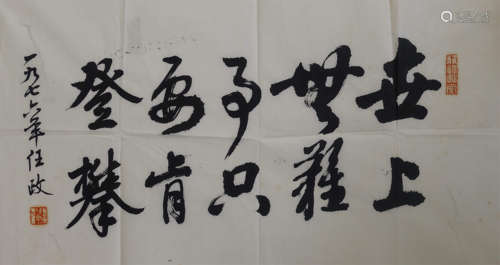 世上
無難
事只
要肯
登攀
一九七六年任政